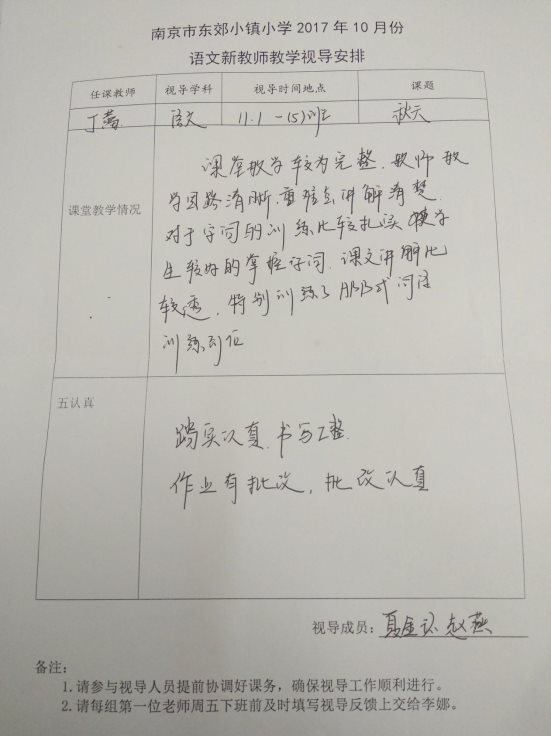 南京市东郊小镇小学 2017 年 10 月份
语文新教师教学视导安排
任课教师 视导学科 视导时间地点 课题
丁茜 语文 11.1 一(5)班 秋天
课堂教学情况
课堂教学较为完整，教师教
学思路清晰，重难点讲解清楚，
对于字词的训练比较扎实，使学
生较好的掌握字词，课文讲解比
较透，特别训练了ABB式词语
训练到位
五认真
踏实认真，书写工整，
作业有批改，批改认真
视导成员： 赵燕
备注：
1.请参与视导人员提前协调好课务，确保视导工作顺利进行。
2.请每组第一位老师周五下班前及时填写视导反馈上交给李娜。